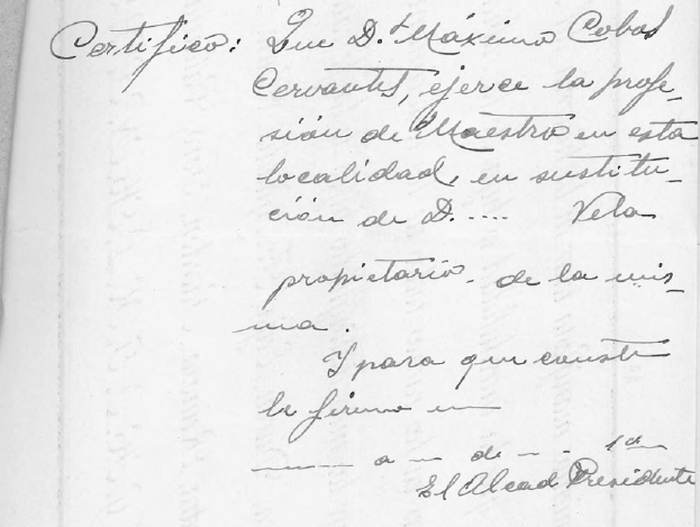 Certifico: Que D. Máximo Cobos
Cervantes, ejerce la profe-
sión de Maestro en esta
localidad, en sustitu-
ción de D. .... Vela
propietario de la mis-
ma.
Y para que conste
le firmo en —
—— a — de — -
El Alcad Presidente